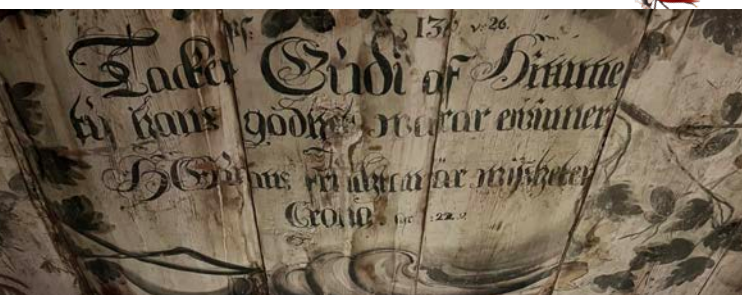 Ps: 136 v. 26.
Tacker Gudi af Himme
ty hans godhet warar ewinner
HErrans fruchtan är wijshetes
Crona. :22.